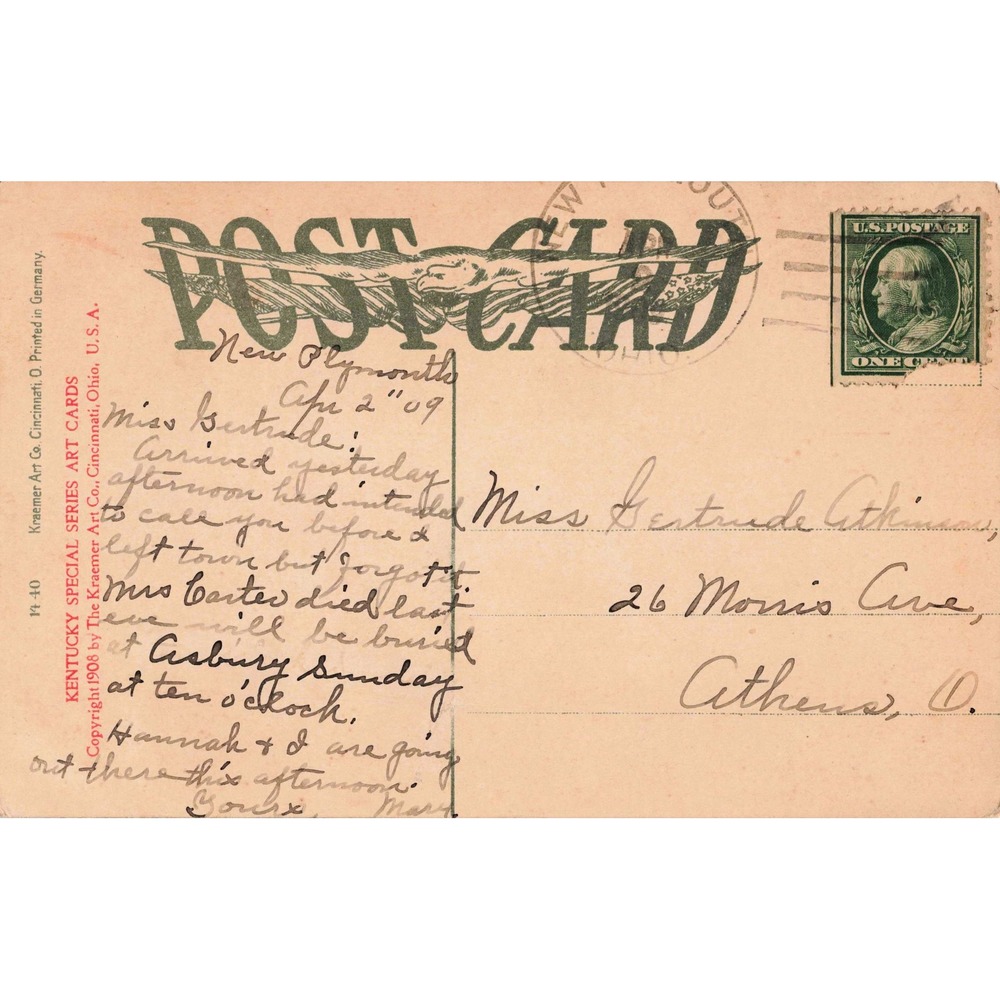 14-40 Kraemer Art Co. Cincinnati, O. Printed in Germany.
KENTUCKY SPECIAL SERIES ART CARDS
Copyright 1908 by The Kraemer Art Co., Cincinnati, Ohio, U. S. A.
POST CARD
NEW OUT
OHIO
U.S. POSTAGE
ONE CENT
New Plymouth
Apr 2" 09
Miss Gertrude:
Arrived yesterday
afternoon had intended
to call you before I
left town but forgot it.
Mrs Carter died last
eve will be buried
at Asbury Sunday
at ten o'clock.
Hannah & I are going
out there this afternoon.
Yours, Mary
Miss Gertrude Atkinson,
26 Morris Ave,
Athens, O.